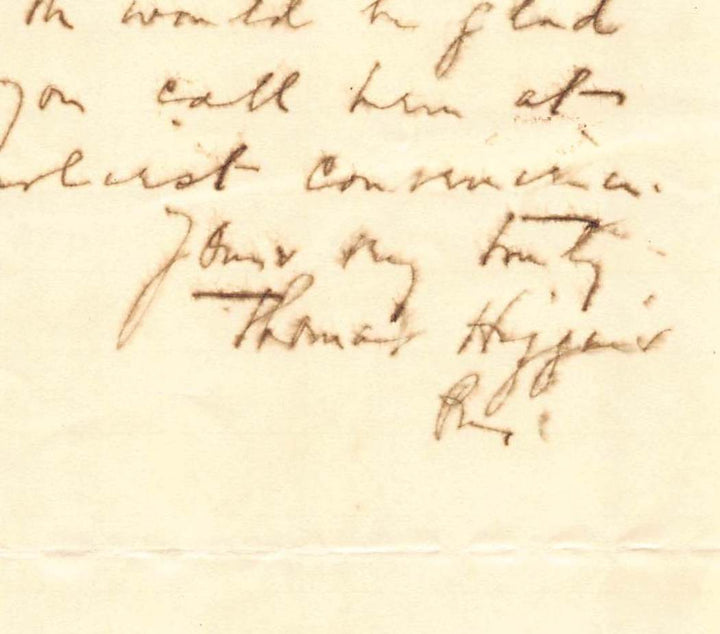 would be glad
you call here at
earliest convenience.
Yours very truly
Thomas Higgins
Pres.